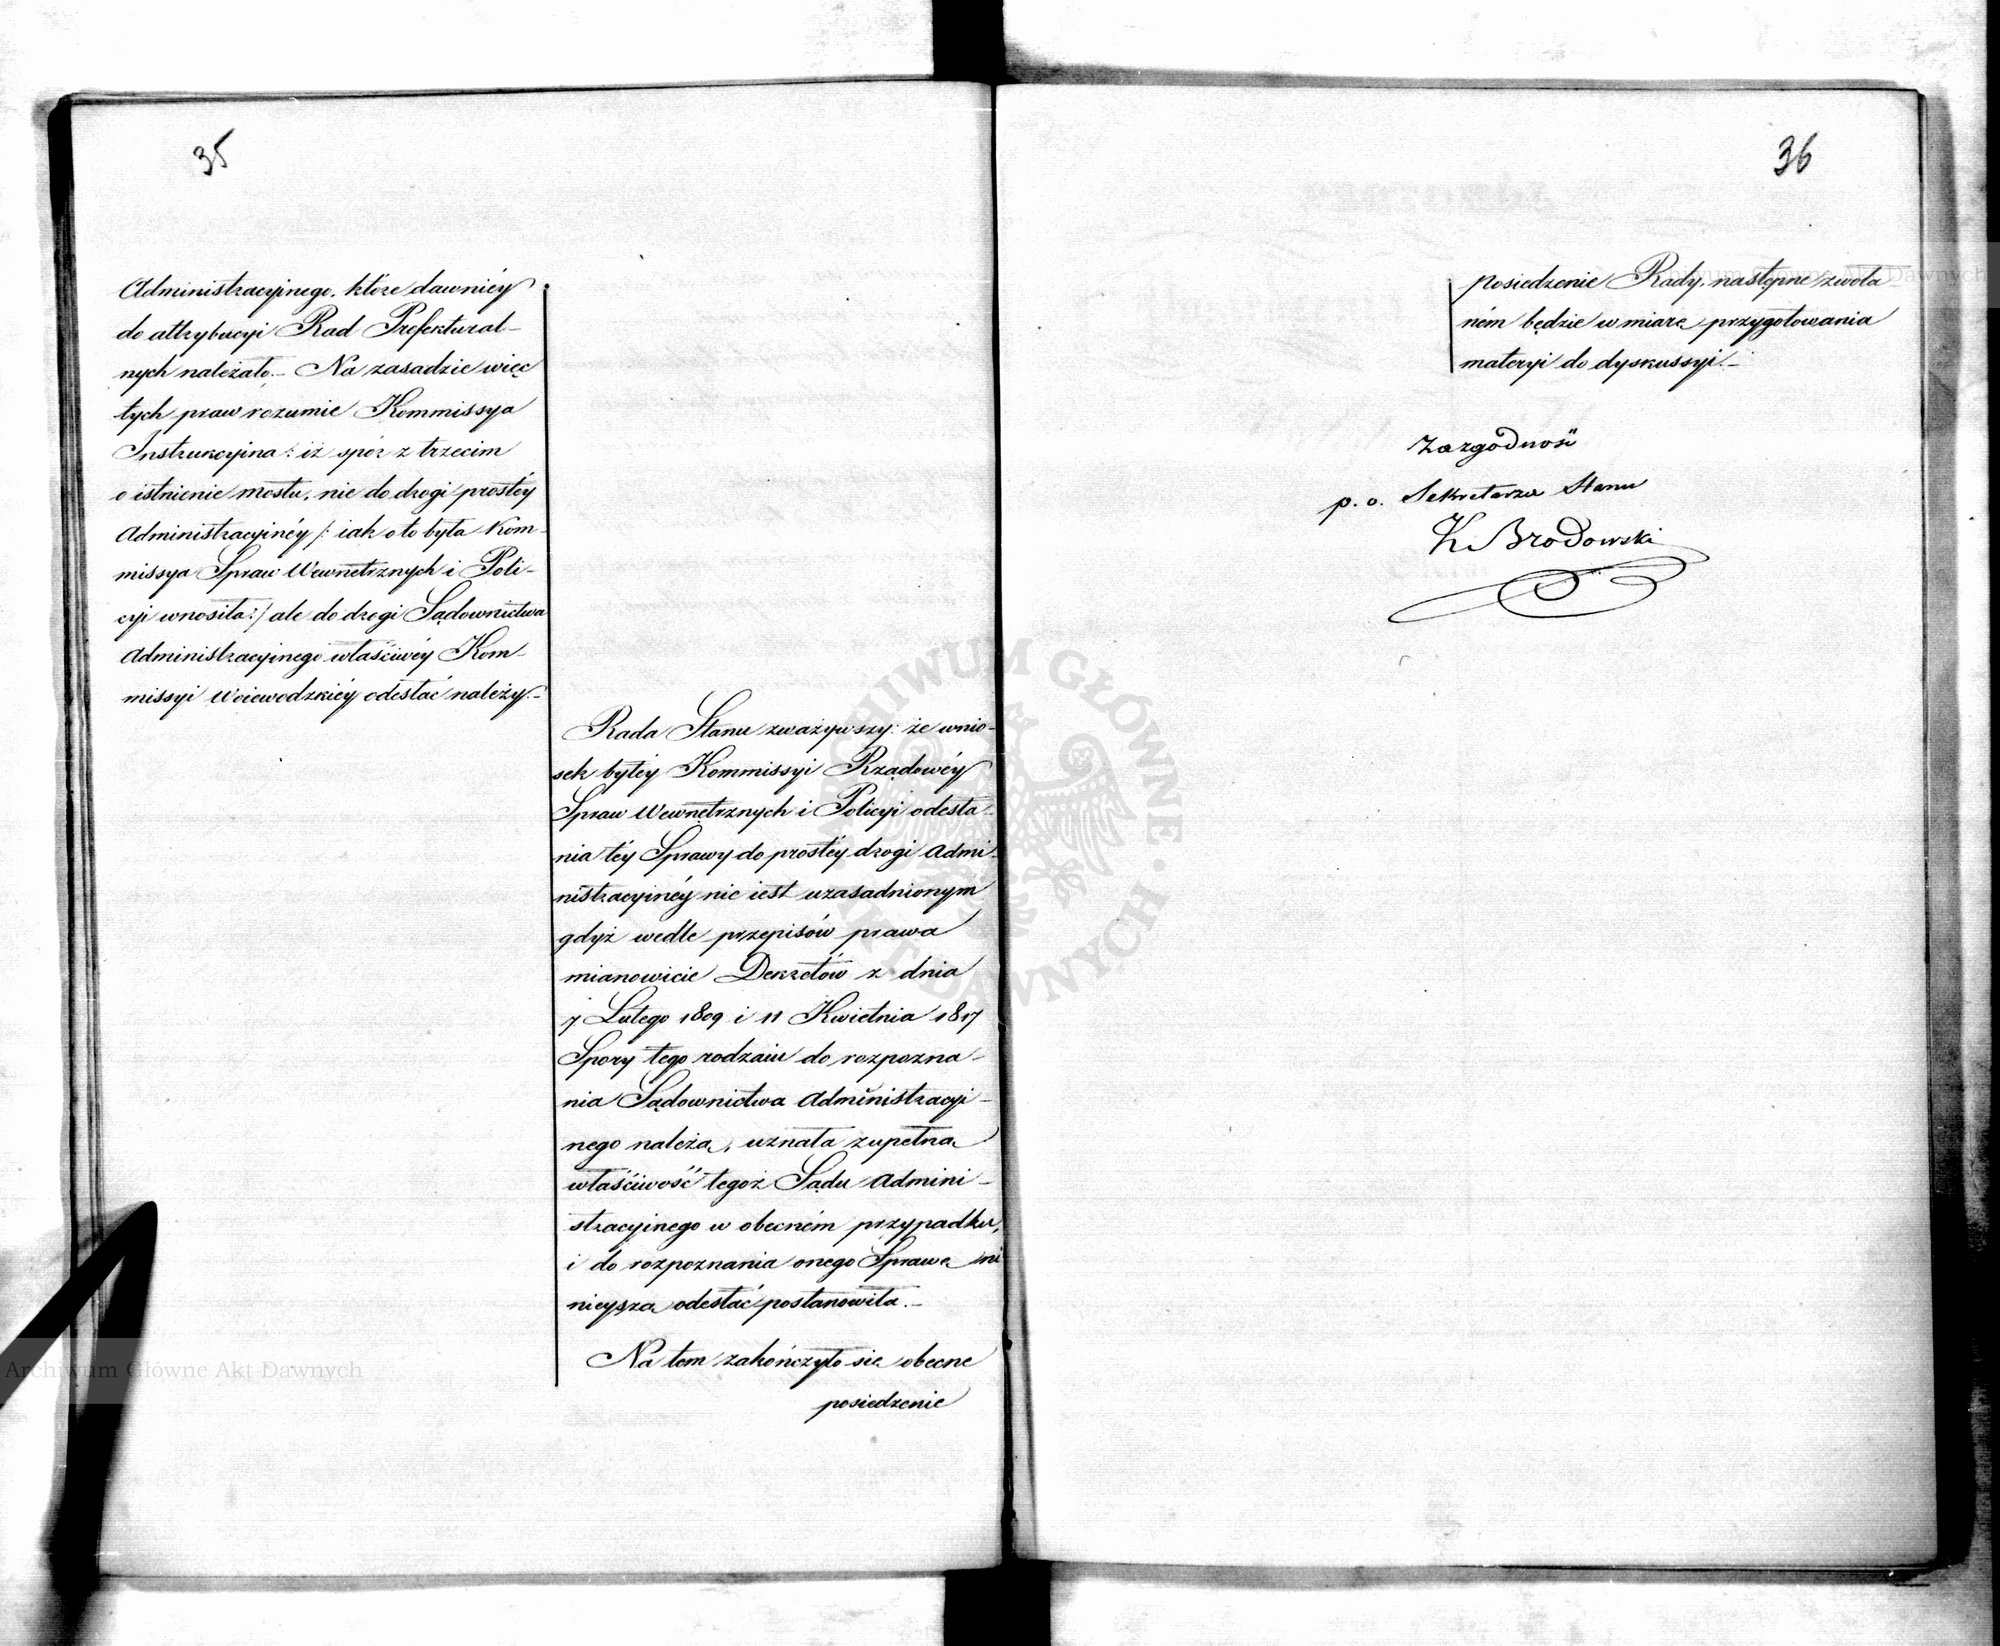 35
Administracyjnego, które dawniéy
do attrybucyi Rad Prefektural-
nych należało.- Na zasadzie więc
tych praw rozumie Kommissya
Instrukcyjna: iż spór z trzecim
o istnienie mostu, nie do drogi prostéy
Administracyinéy /: iak o to była Kom-
missya Spraw Wewnetrznych i Poli-
cyi wnosiła:/ ale do drogi Sądownictwa
Administracyjnego właściwéy Kom-
missyi Woiewodzkiéy odesłać należy.-
Rada Stanu zważywszy: że wnio-
sek byłéy Kommissyi Rządowéy
Spraw Wewnętrznych i Policyi odesła-
nia téy Sprawy do prostéy drogi Admi-
nistracyinéy nie iest uzasadnionym
gdyż wedle przepisów prawa
mianowicie Dekretów z dnia
7 Lutego 1809 i 11 Kwietnia 1817
Spory tego rodzaiu do rozpozna-
nia Sądownictwa Administracyi-
nego należą, uznała zupełną
właściwość tegoż Sądu Admini-
stracyjnego w obecném przypadku,
i do rozpoznania onego Sprawę ni
nieyszą odesłać postanowiła.-
Na tem zakończyło się obecne
posiedzenie
36
posiedzenie Rady, następne zwoła
ném będzie w miarę przygotowania
materyi do dyskussyi.-
Za zgodność
p. o. Sekretarza Stanu
K. Brodowski
ARCHIWUM GŁÓWNE AKT DAWNYCH
Archiwum Główne Akt Dawnych
Archiwum Główne Akt Dawnych